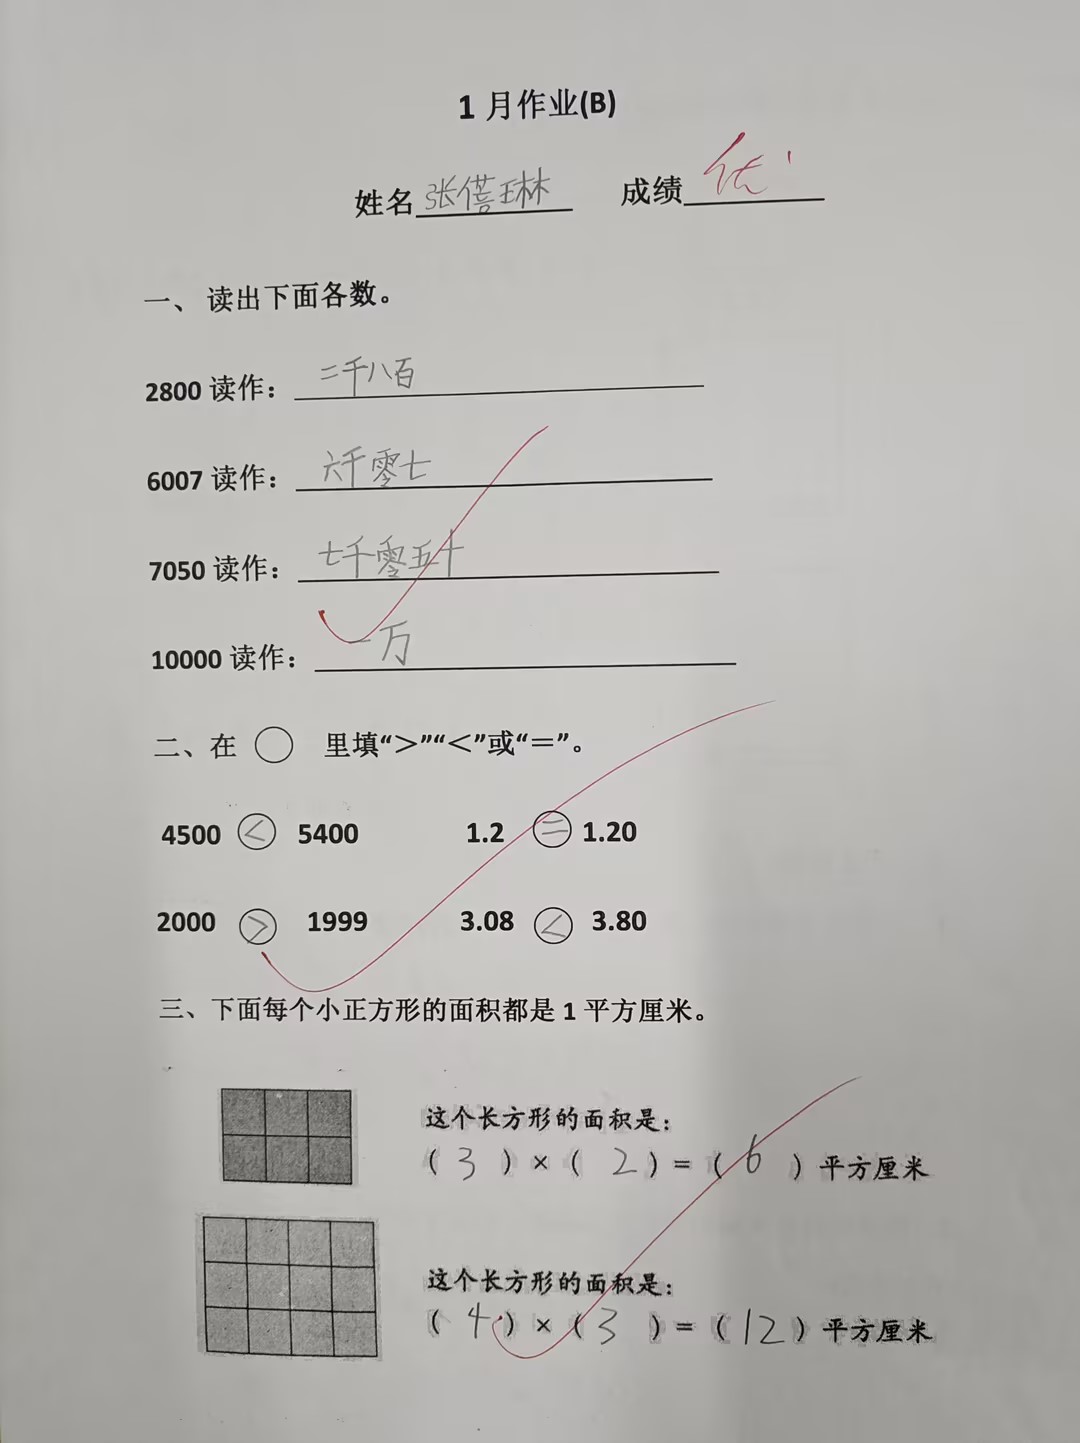 1 月作业(B)
姓名 张僖琳 成绩 优
一、 读出下面各数。
2800 读作: 二千八百
6007 读作: 六千零七
7050 读作: 七千零五十
10000 读作: 一万
二、在 ○ 里填“>”“<”或“=”。
4500 < 5400 1.2 = 1.20
2000 > 1999 3.08 < 3.80
三、下面每个小正方形的面积都是 1 平方厘米。
这个长方形的面积是:
( 3 ) × ( 2 ) = ( 6 ) 平方厘米
这个长方形的面积是:
( 4 ) × ( 3 ) = ( 12 ) 平方厘米